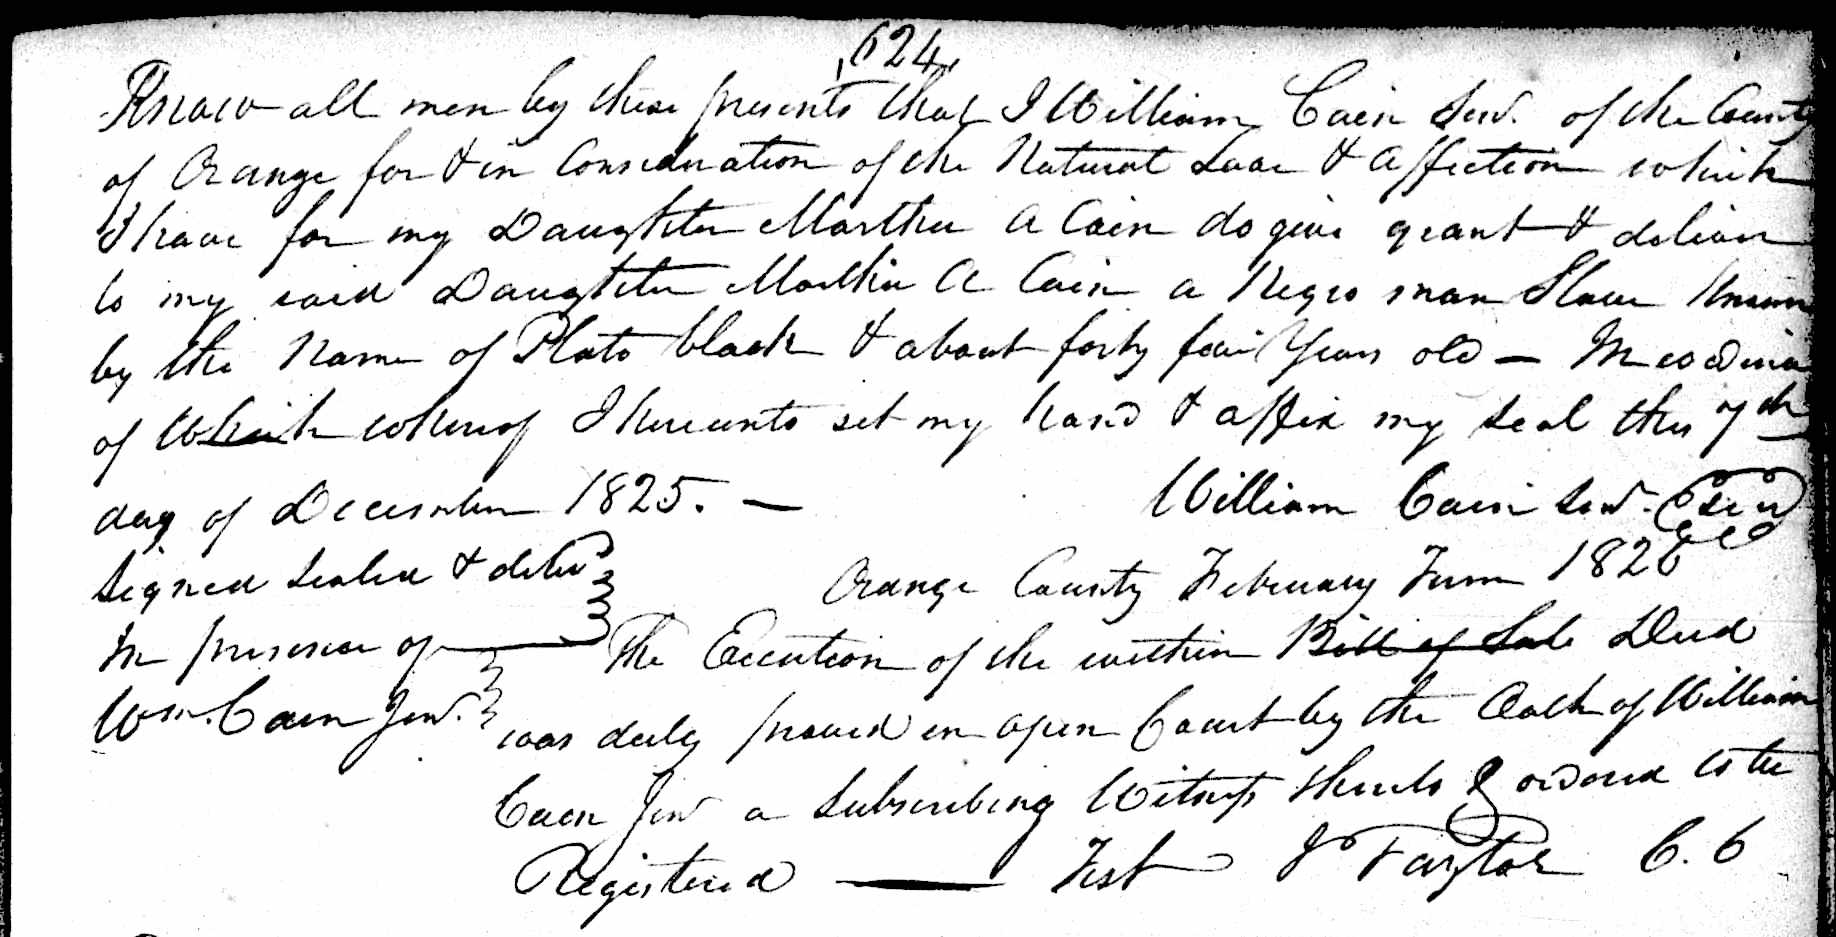 624
Know all men by these presents that I William Cain Senr. of the County
of Orange for & in Consideration of the Natural Love & affection which
I have for my Daughter Martha A Cain do give grant & deliver
to my said Daughter Martha A Cain a Negro man Slave Known
by the Name of Plato black & about forty four Years old — In evidence
of Which whereof I hereunto set my hand & affix my Seal this 7th
day of December 1825. — William Cain Senr. Seal
Signed Sealed & delivd
In presence of
Wm. Cain Junr.
Orange County February Term 1826
The Execution of the within Bill of Sale Deed
was duly proved in open Court by the Oath of William
Cain Junr a Subscribing Witness thereto & ordered to be
Registered — Test J Taylor C. C